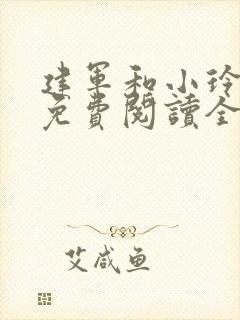 建军和小玲
免費閱讀全
艾咸鱼